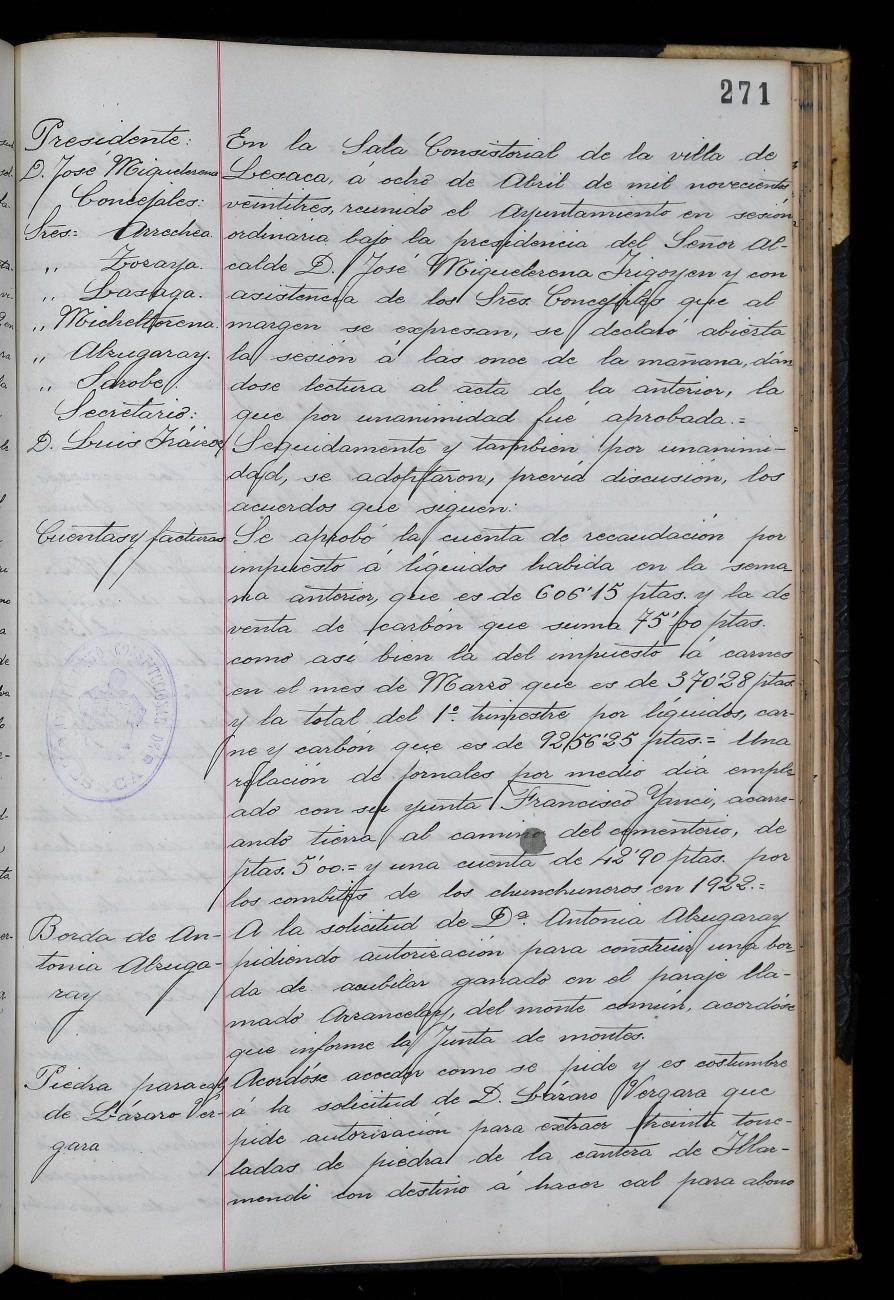 271
Presidente:
D. José Miguelerena
Concejales:
Sres= Arrechea.
,, Zozaya.
,, Lasaga.
,, Micheltorena.
,, Alzugaray.
,, Sarobe.
Secretario:
D. Luis
En la Sala Consistorial de la villa de
Lesaca, a ocho de Abril de mil novecientos
veintitres, reunido el Ayuntamiento en sesión
ordinaria bajo la presidencia del Señor Al-
calde D. José Miguelerena Irigoyen y con
asistencia de los Sres. Concejales que al
margen se expresan, se declaró abierta
la sesión á las once de la mañana, dán
dose lectura al acta de la anterior, la
que por unanimidad fué aprobada.=
Seguidamente y tambien por unanimi-
dad, se adoptaron, previa discusión, los
acuerdos que siguen:
Cuentas y facturas
Se aprobó la cuenta de recaudación por
impuesto á líquidos habida en la sema
na anterior, que es de 606'15 ptas. y la de
venta de carbón que suma 75'60 ptas.
como asi bien la del impuesto á carnes
en el mes de Marzo que es de 370'28 ptas.
y la total del 1º trimestre por líquidos, car-
ne y carbón que es de 9256'25 ptas.= Una
relación de jornales por medio dia emple
ado con su yunta Francisco Yanci, acarre-
ando tierra al camino del cementerio, de
ptas. 5'00.= y una cuenta de 42'90 ptas. por
los combites de los chunchuneros en 1922.=
Borda de An-
tonia Alzuga-
ray
A la solicitud de Dª. Antonia Alzugaray
pidiendo autorización para construir una bor-
da de acubilar ganado en el paraje lla-
mado Arrancelay, del monte común, acordóse
que informe la Junta de montes.
Piedra para cal
de Lázaro Ver-
gara
Acordóse acceder como se pide y es costumbre
á la solicitud de D. Lázaro Vergara que
pide autorización para extraer treinta tone-
ladas de piedra de la cantera de Illar-
mendi con destino á hacer cal para abono